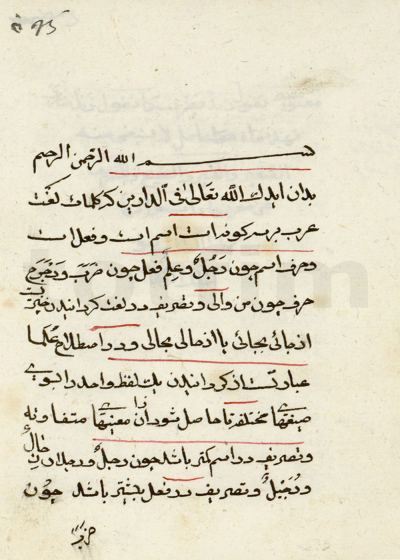 بسم الله الرحمن الرحيم
بدان ايدك الله تعالى فى الدارين كه كلمات لغت
عرب بر سه كونه است اسم است و فعل است
و حرف اسم چون رَجُلٌ و عِلْم فعل چون ضَرَبَ و دَحْرَجَ
حرف چون من و الى و تصريف در لغت كردانيدن چيزيست
از جائى بجائى يا از حالى بحالى و در اصطلاح علما
عبارتست از كردانيدن يك لفظ واحد را بسوى
صيغهاى مختلفه تا حاصل شود از آن معنيهاى متفاوته
و تصريف در اسم كمتر باشد چون رجلٌ و رجلان رجالٌ
و رُجَيْلٌ و تصريف در فعل بيشتر باشد چون
ضرب